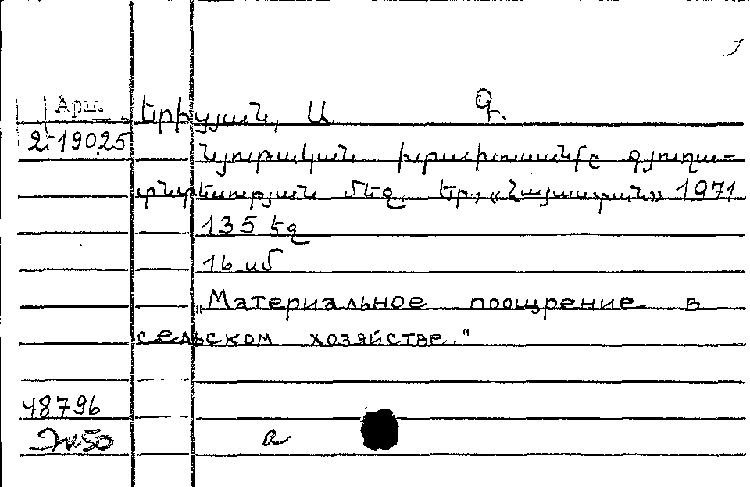 Арш. Երիցյան, Ա Գ.
2-19025
Նյութական խրախուսանքը գյուղա-
տնտեսության մեջ. Եր., «Հայաստան» 1971
135 էջ
16 սմ
„Материальное поощрение в
сельском хозяйстве."
48796
а